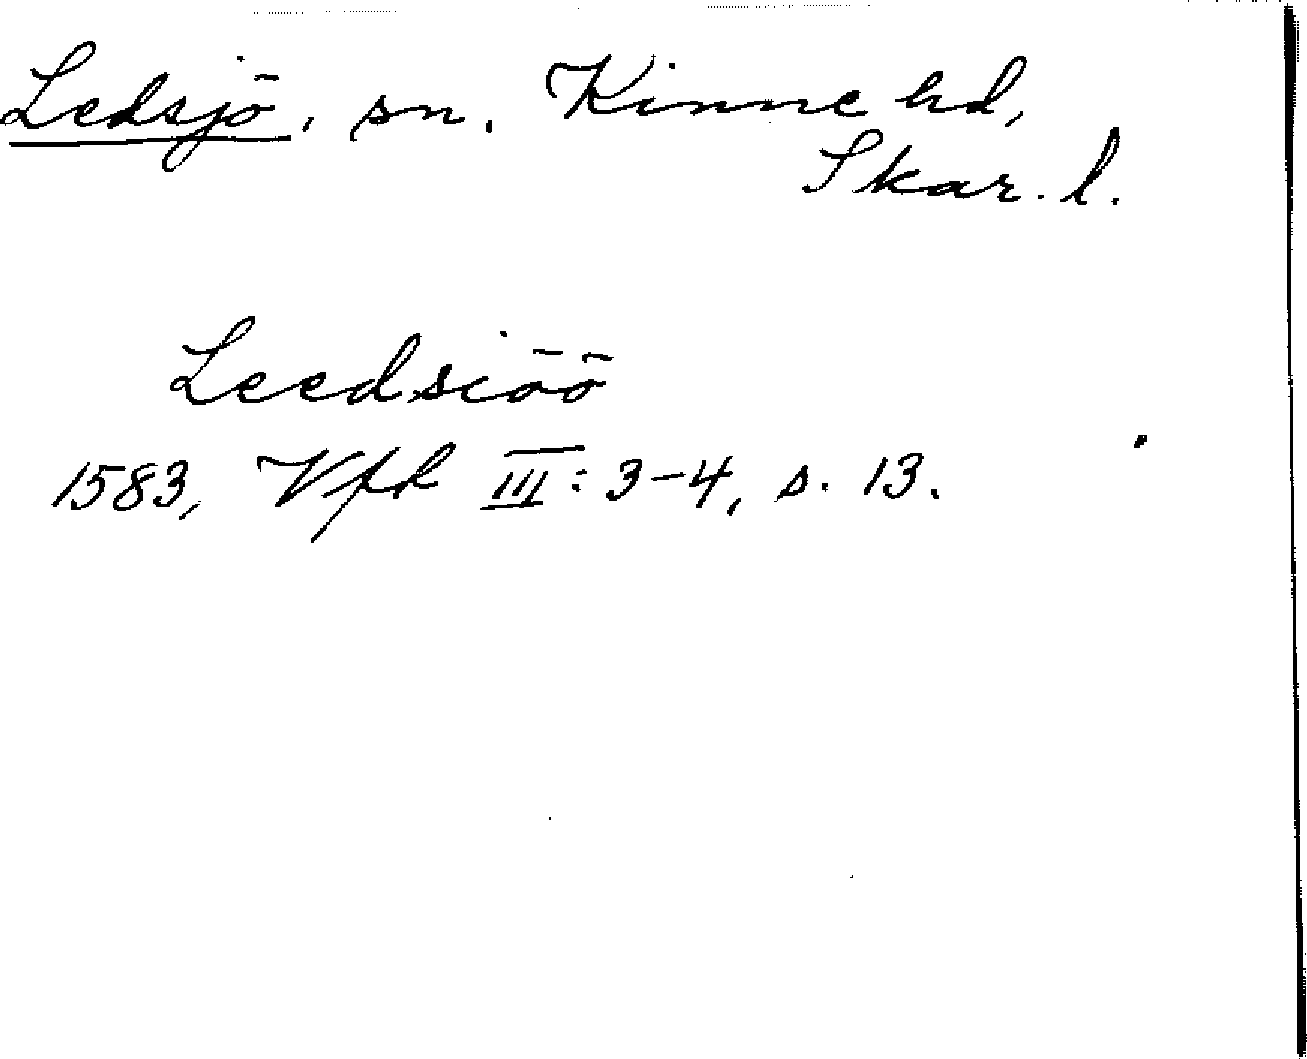 Ledsjö, sn. Kinne hd,
Skar. l.
Leedsiöö
1583, Vfk III: 3-4, s. 13.